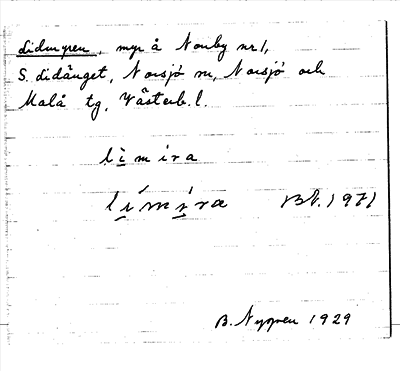 Lidmyren, myr å Norby nr 1,
S. Lidänget, Norsjö sn, Norsjö och
Malå tg, Västerb. l.
lìmira
límíræ Bt. 1971
B. Nygren 1929